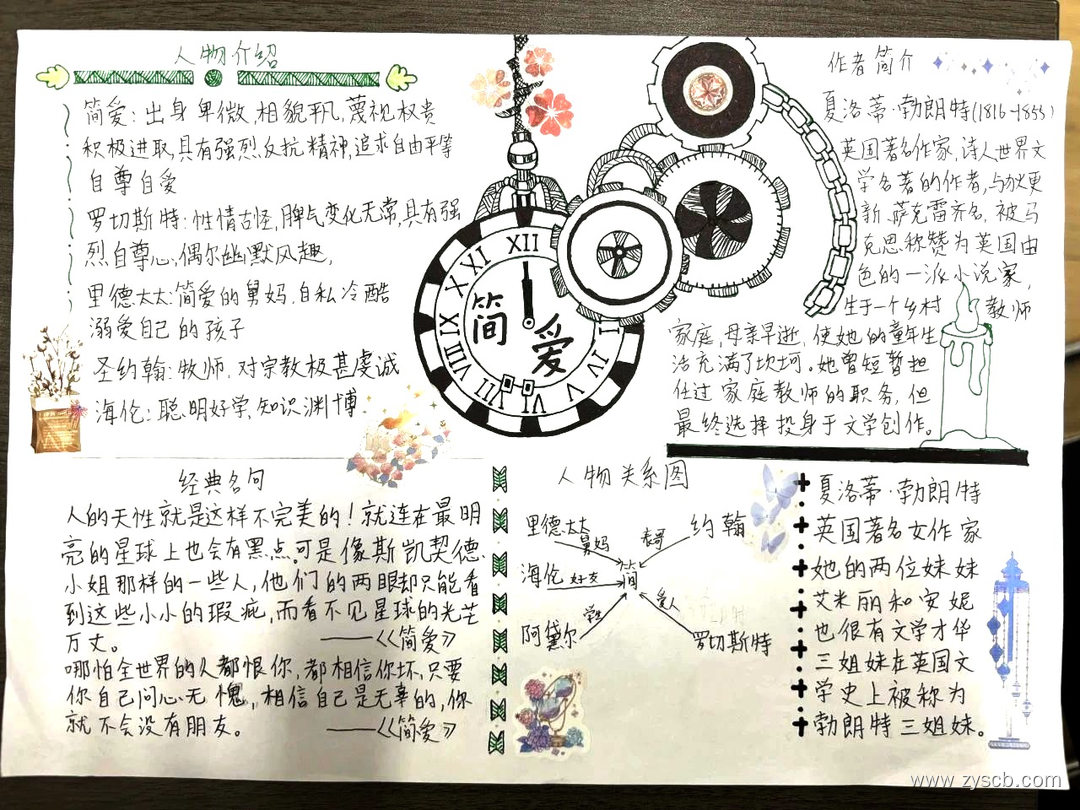 人物介绍
简爱：出身卑微，相貌平凡，蔑视权贵
积极进取，具有强烈反抗精神，追求自由平等
自尊自爱
罗切斯特：性情古怪，脾气变化无常，具有强
烈自尊心，偶尔幽默风趣，
里德太太：简爱的舅妈，自私冷酷
溺爱自己的孩子
圣约翰：牧师，对宗教极甚虔诚
海伦：聪明好学，知识渊博
XII
XI
X
IX
VIII
VII
VI
V
IV
简爱
作者简介
夏洛蒂·勃朗特(1816-1855)
英国著名作家，诗人世界文
学名著的作者，与狄更
斯、萨克雷齐名，被马
克思称赞为英国由
色的一派小说家，
生于一个乡村教师
家庭，母亲早逝，使她的童年生
活充满了坎坷。她曾短暂担
任过家庭教师的职务，但
最终选择投身于文学创作。
经典名句
人的天性就是这样不完美的！就连在最明
亮的星球上也会有黑点，可是像斯凯契德
小姐那样的一些人，他们的两眼却只能看
到这些小小的瑕疵，而看不见星球的光芒
万丈。——《简爱》
哪怕全世界的人都恨你，都相信你坏，只要
你自己问心无愧，相信自己是无辜的，你
就不会没有朋友。——《简爱》
人物关系图
里德太太 舅妈
约翰 表哥
海伦 好友
简
阿黛尔 学生
罗切斯特 爱人
夏洛蒂·勃朗特
英国著名女作家
她的两位妹妹
艾米丽和安妮
也很有文学才华
三姐妹在英国文
学史上被称为
勃朗特三姐妹。
www.zyscb.com